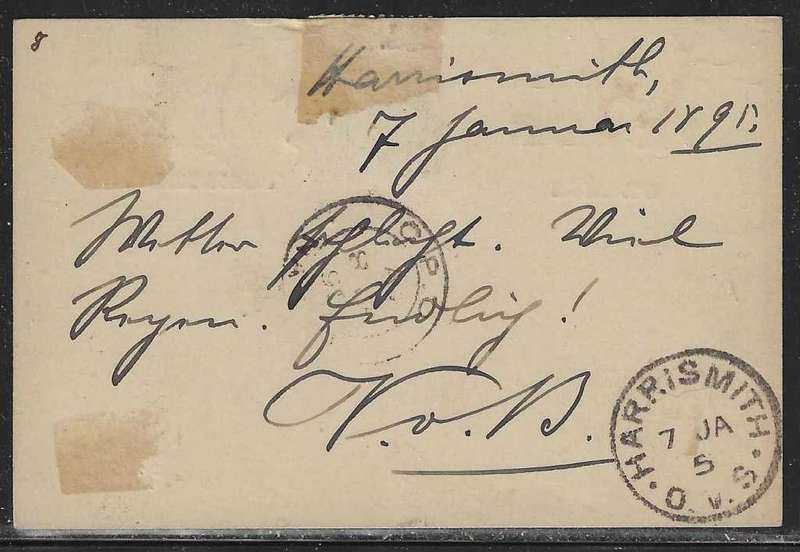 8
Harrismith,
7 Januar 1895.
Wetter schlecht. Viel
Regen. Endlich!
v. B.
HARRISMITH
7 JA
5
O.V.S.